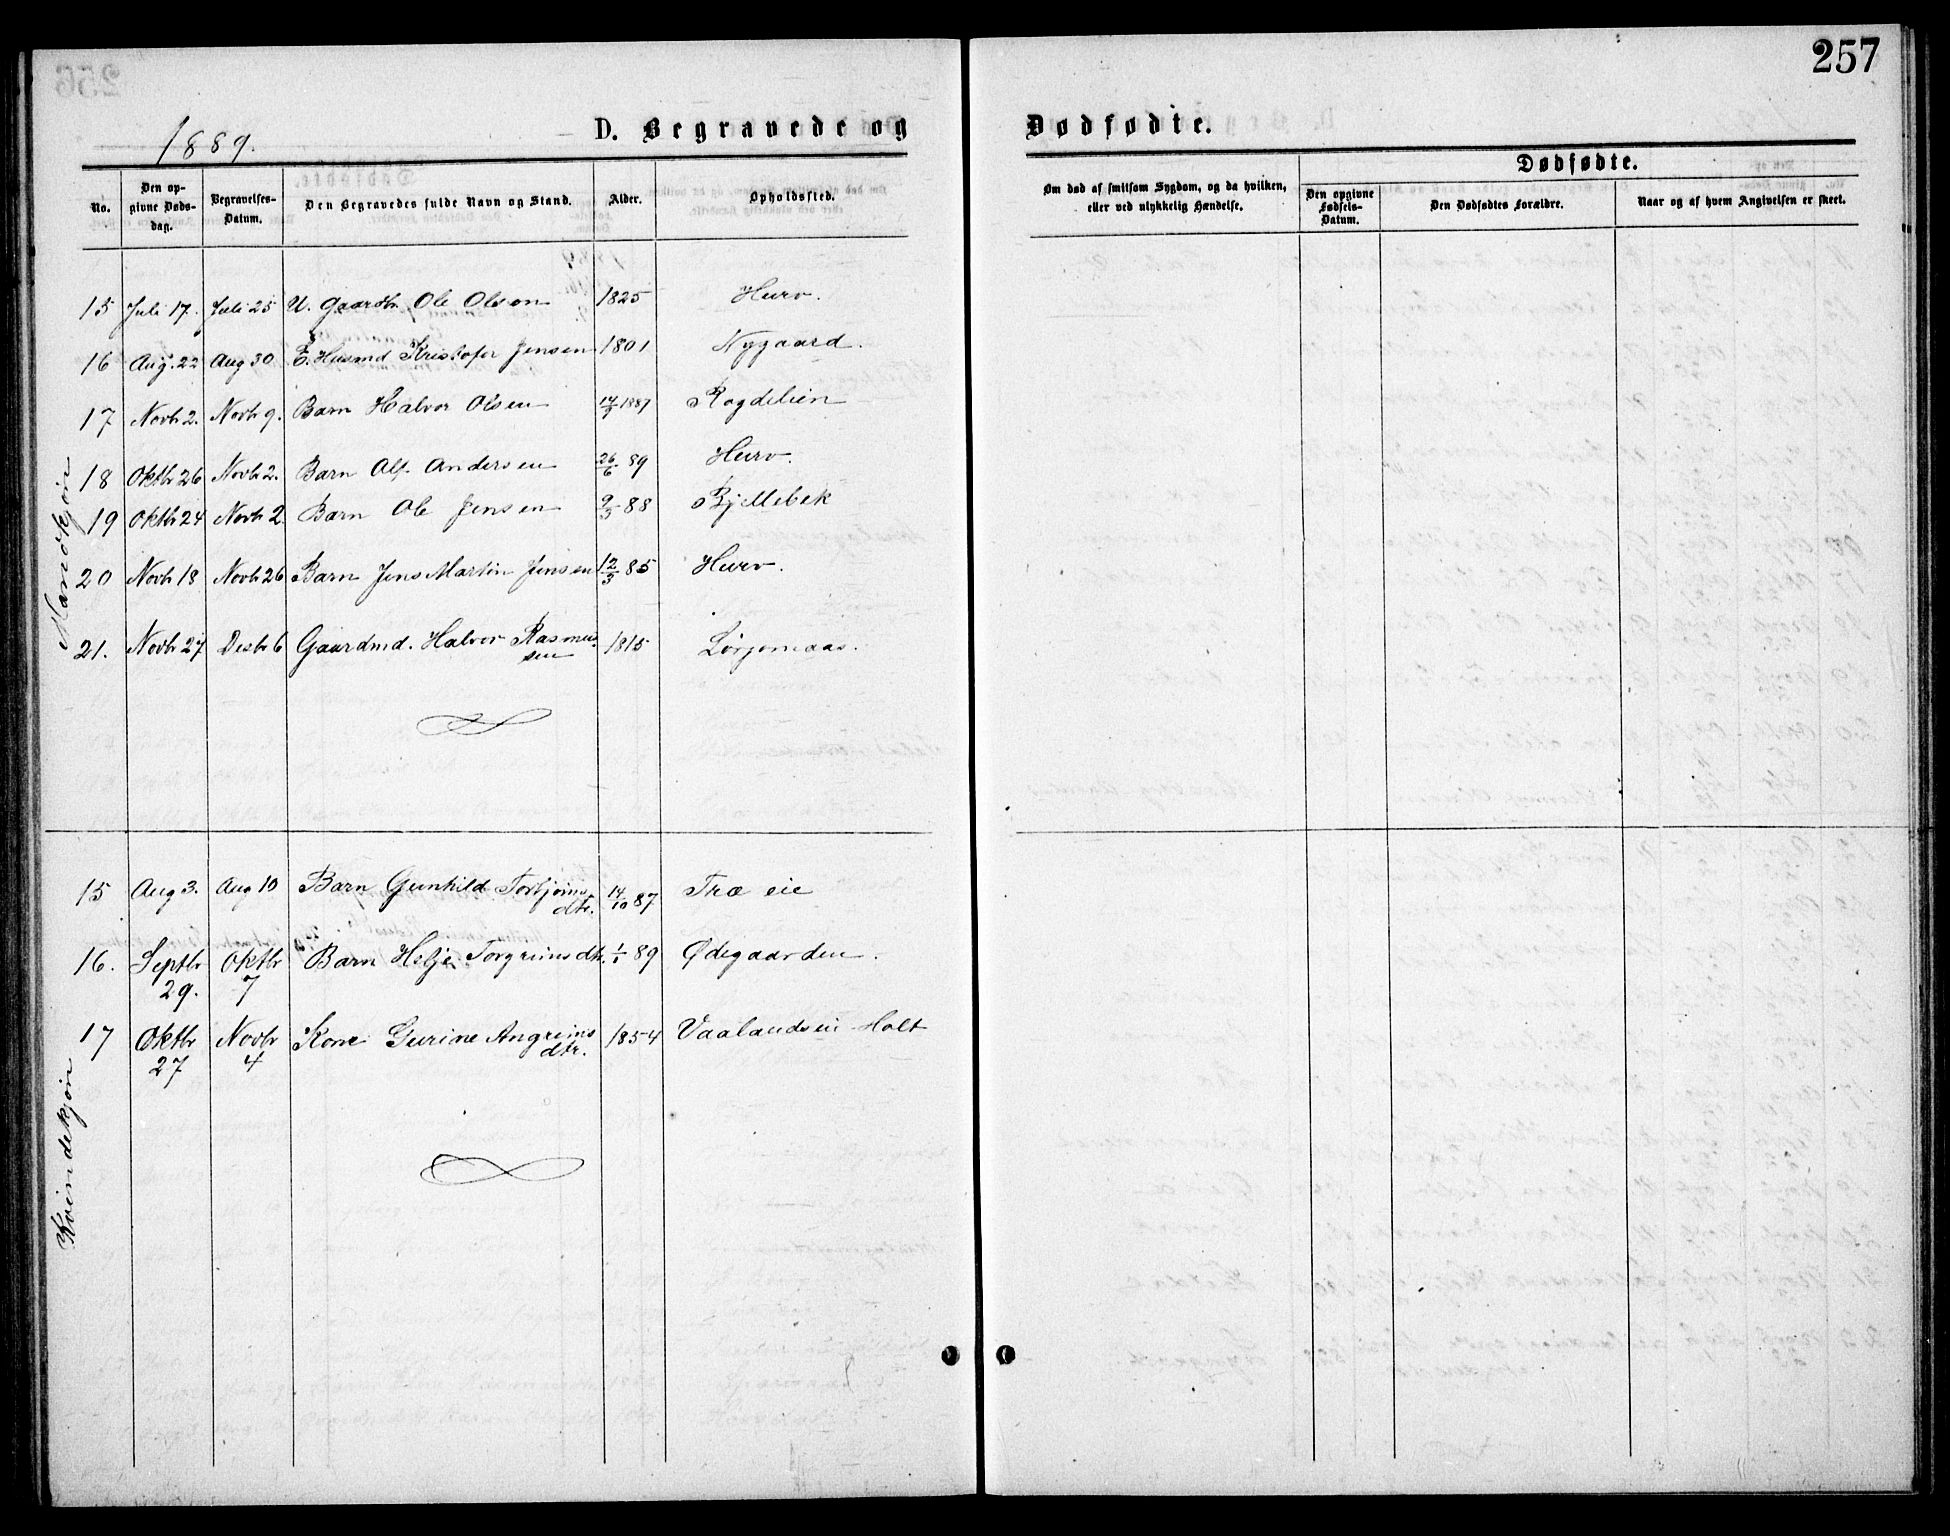 257
1889.
D. Begravede og Dødfødte.
No. Den opgivne Dødsdag. Begravelses-Datum. Den Begravedes fulde Navn og Stand. Alder. Opholdssted. Om død af smitsom Sygdom, og da hvilken, eller ved ulykkelig Hændelse. Dødfødte. Den opgivne Fødsels-Datum. Den Dødfødtes Forældre. Naar og af hvem Angivelsen er skeet.
Mandkjøn
15 Juli 17. Juli 25 U. Gaardbr. Ole Olsen 1825 Hurv.
16 Aug. 22 Aug 30 E. Husmd Kristofer Jensen 1801 Nygaard.
17 Novb 2. Novb 9. Barn Halvor Olsen 1887 Rogdelien
18 Oktb 26 Novb 2. Barn Alf Andersen 26/6 89 Hurv.
19 Oktb 24 Novb 2 Barn Ole Jensen 9/3 88 Bjellebek
20 Novb 18 Novb 26 Barn Jens Martin Jensen 12/3 85 Hurv.
21. Novb 27 Desb 6 Gaardmd. Halvor Rasmussen 1815
Kvindekjøn
15 Aug 3. Aug 10 Barn Gunhild Torbjørns dtr. 14/10 87 Træ eie
16. Septbr 29. Oktbr 7 Barn Helje Torgrimsdtr. 1/1 89 Ødegaarden.
17 Oktbr 27 Novbr 4 Kone Gurine Angrims dtr. 1854 Vaalandseie Holt